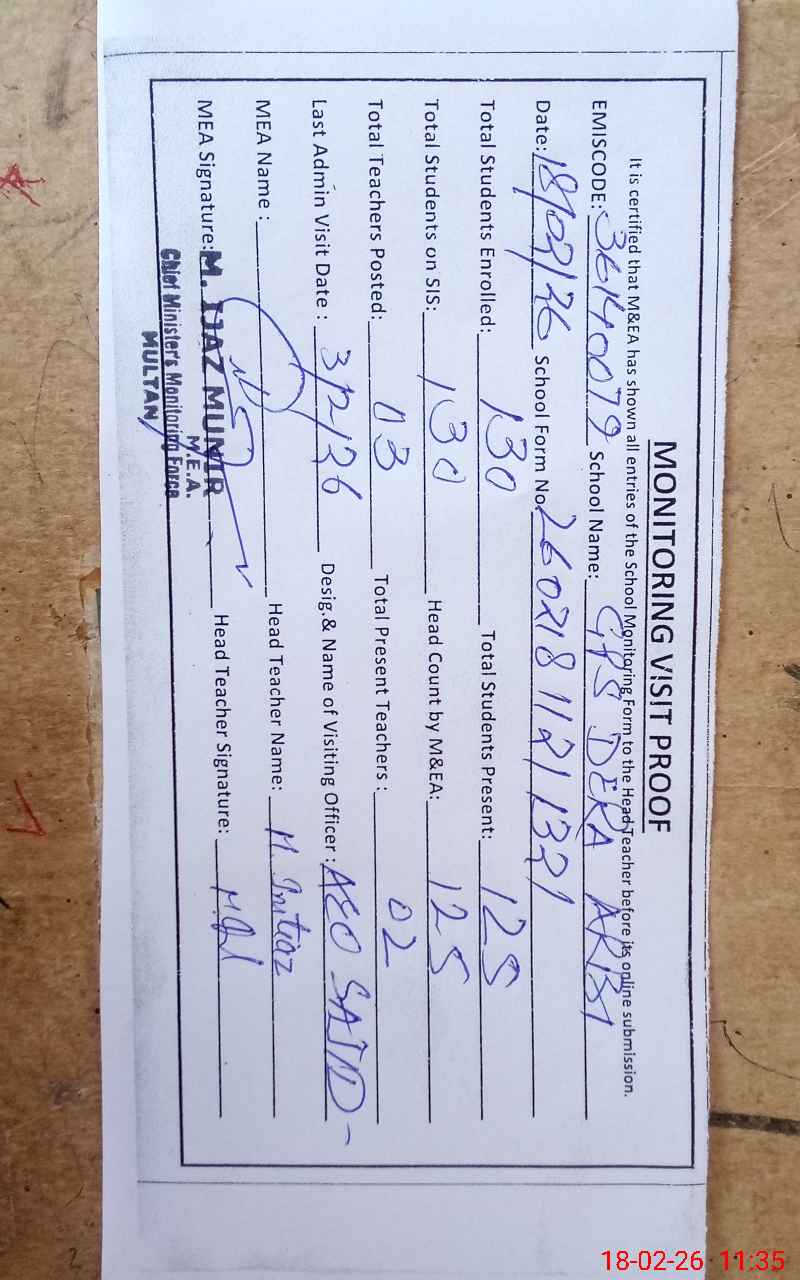 MONITORING VISIT PROOF
It is certified that M&EA has shown all entries of the School Monitoring Form to the Head Teacher before its online submission.
EMISCODE: 36140079 School Name: GPS DERA ARBI
Date: 18/02/26 School Form No. 26021811211321
Total Students Enrolled: 130 Total Students Present: 125
Total Students on SIS: 130 Head Count by M&EA: 125
Total Teachers Posted: 03 Total Present Teachers : 02
Last Admin Visit Date : 3/2/26 Desig.& Name of Visiting Officer : AEO SAJID
MEA Name : Head Teacher Name: M. Imtiaz
MEA Signature: M. IJAZ MUNIR Head Teacher Signature:
M.E.A.
Chief Minister's Monitoring Force
MULTAN
18-02-26 11:35